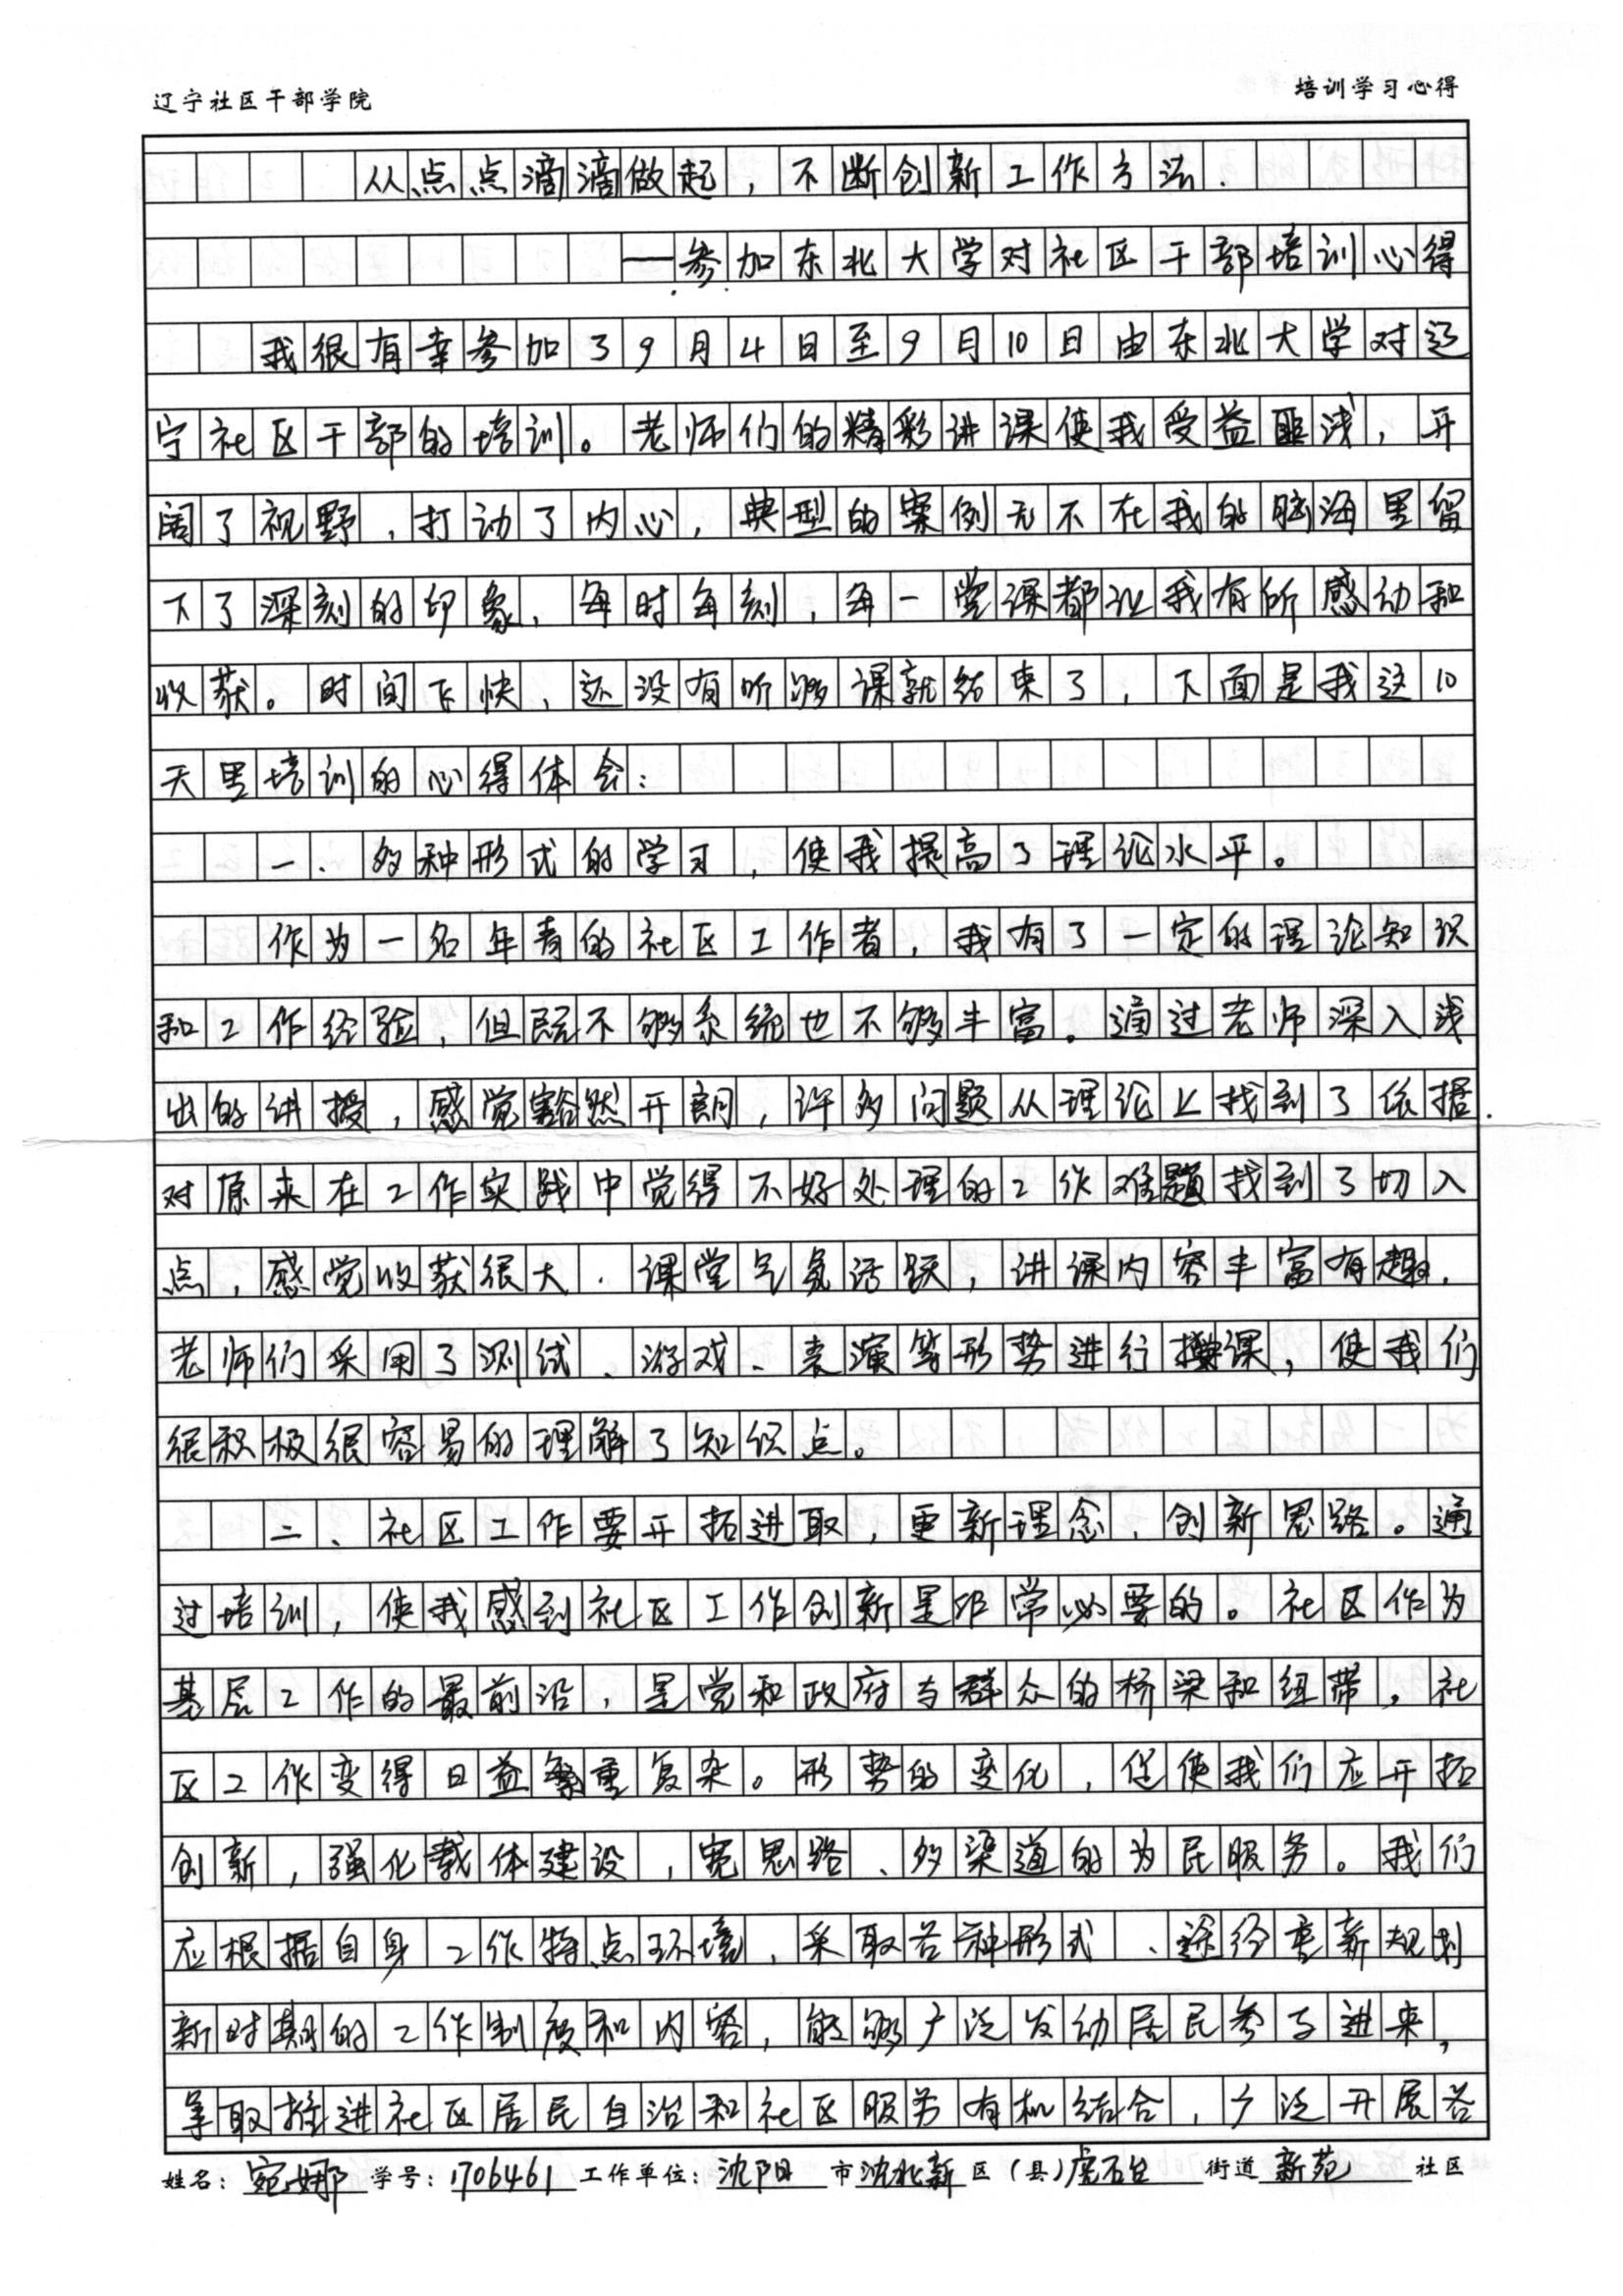 辽宁社区干部学院
培训学习心得
从点点滴滴做起，不断创新工作方法.
——参加东北大学对社区干部培训心得
我很有幸参加了9月4日至9月10日由东北大学对辽
宁社区干部的培训。老师们的精彩讲课使我受益匪浅，开
阔了视野，打动了内心，典型的案例无不在我的脑海里留
下了深刻的印象，每时每刻，每一堂课都让我有所感动和
收获。时间飞快，还没有听够课就结束了，下面是我这10
天里培训的心得体会：
一、多种形式的学习，使我提高了理论水平。
作为一名年青的社区工作者，我有了一定的理论知识
和工作经验，但既不够系统也不够丰富。通过老师深入浅
出的讲授，感觉豁然开朗，许多问题从理论上找到了依据.
对原来在工作实践中觉得不好处理的工作难题找到了切入
点，感觉收获很大.课堂气氛活跃，讲课内容丰富有趣.
老师们采用了测试、游戏、表演等形势进行授课，使我们
很积极很容易的理解了知识点。
二、社区工作要开拓进取，更新理念，创新思路。通
过培训，使我感到社区工作创新是非常必要的。社区作为
基层工作的最前沿，是党和政府与群众的桥梁和纽带，社
区工作变得日益繁重复杂。形势的变化，促使我们应开拓
创新，强化载体建设，宽思路、多渠道的为民服务。我们
应根据自身工作特点环境，采取各种形式、途径重新规划
新时期的工作制度和内容，能够广泛发动居民参与进来，
争取推进社区居民自治和社区服务有机结合，广泛开展各
姓名：宛娜 学号：170646 工作单位：沈阳 市 沈北新 区（县）虎石台 街道 新苑 社区